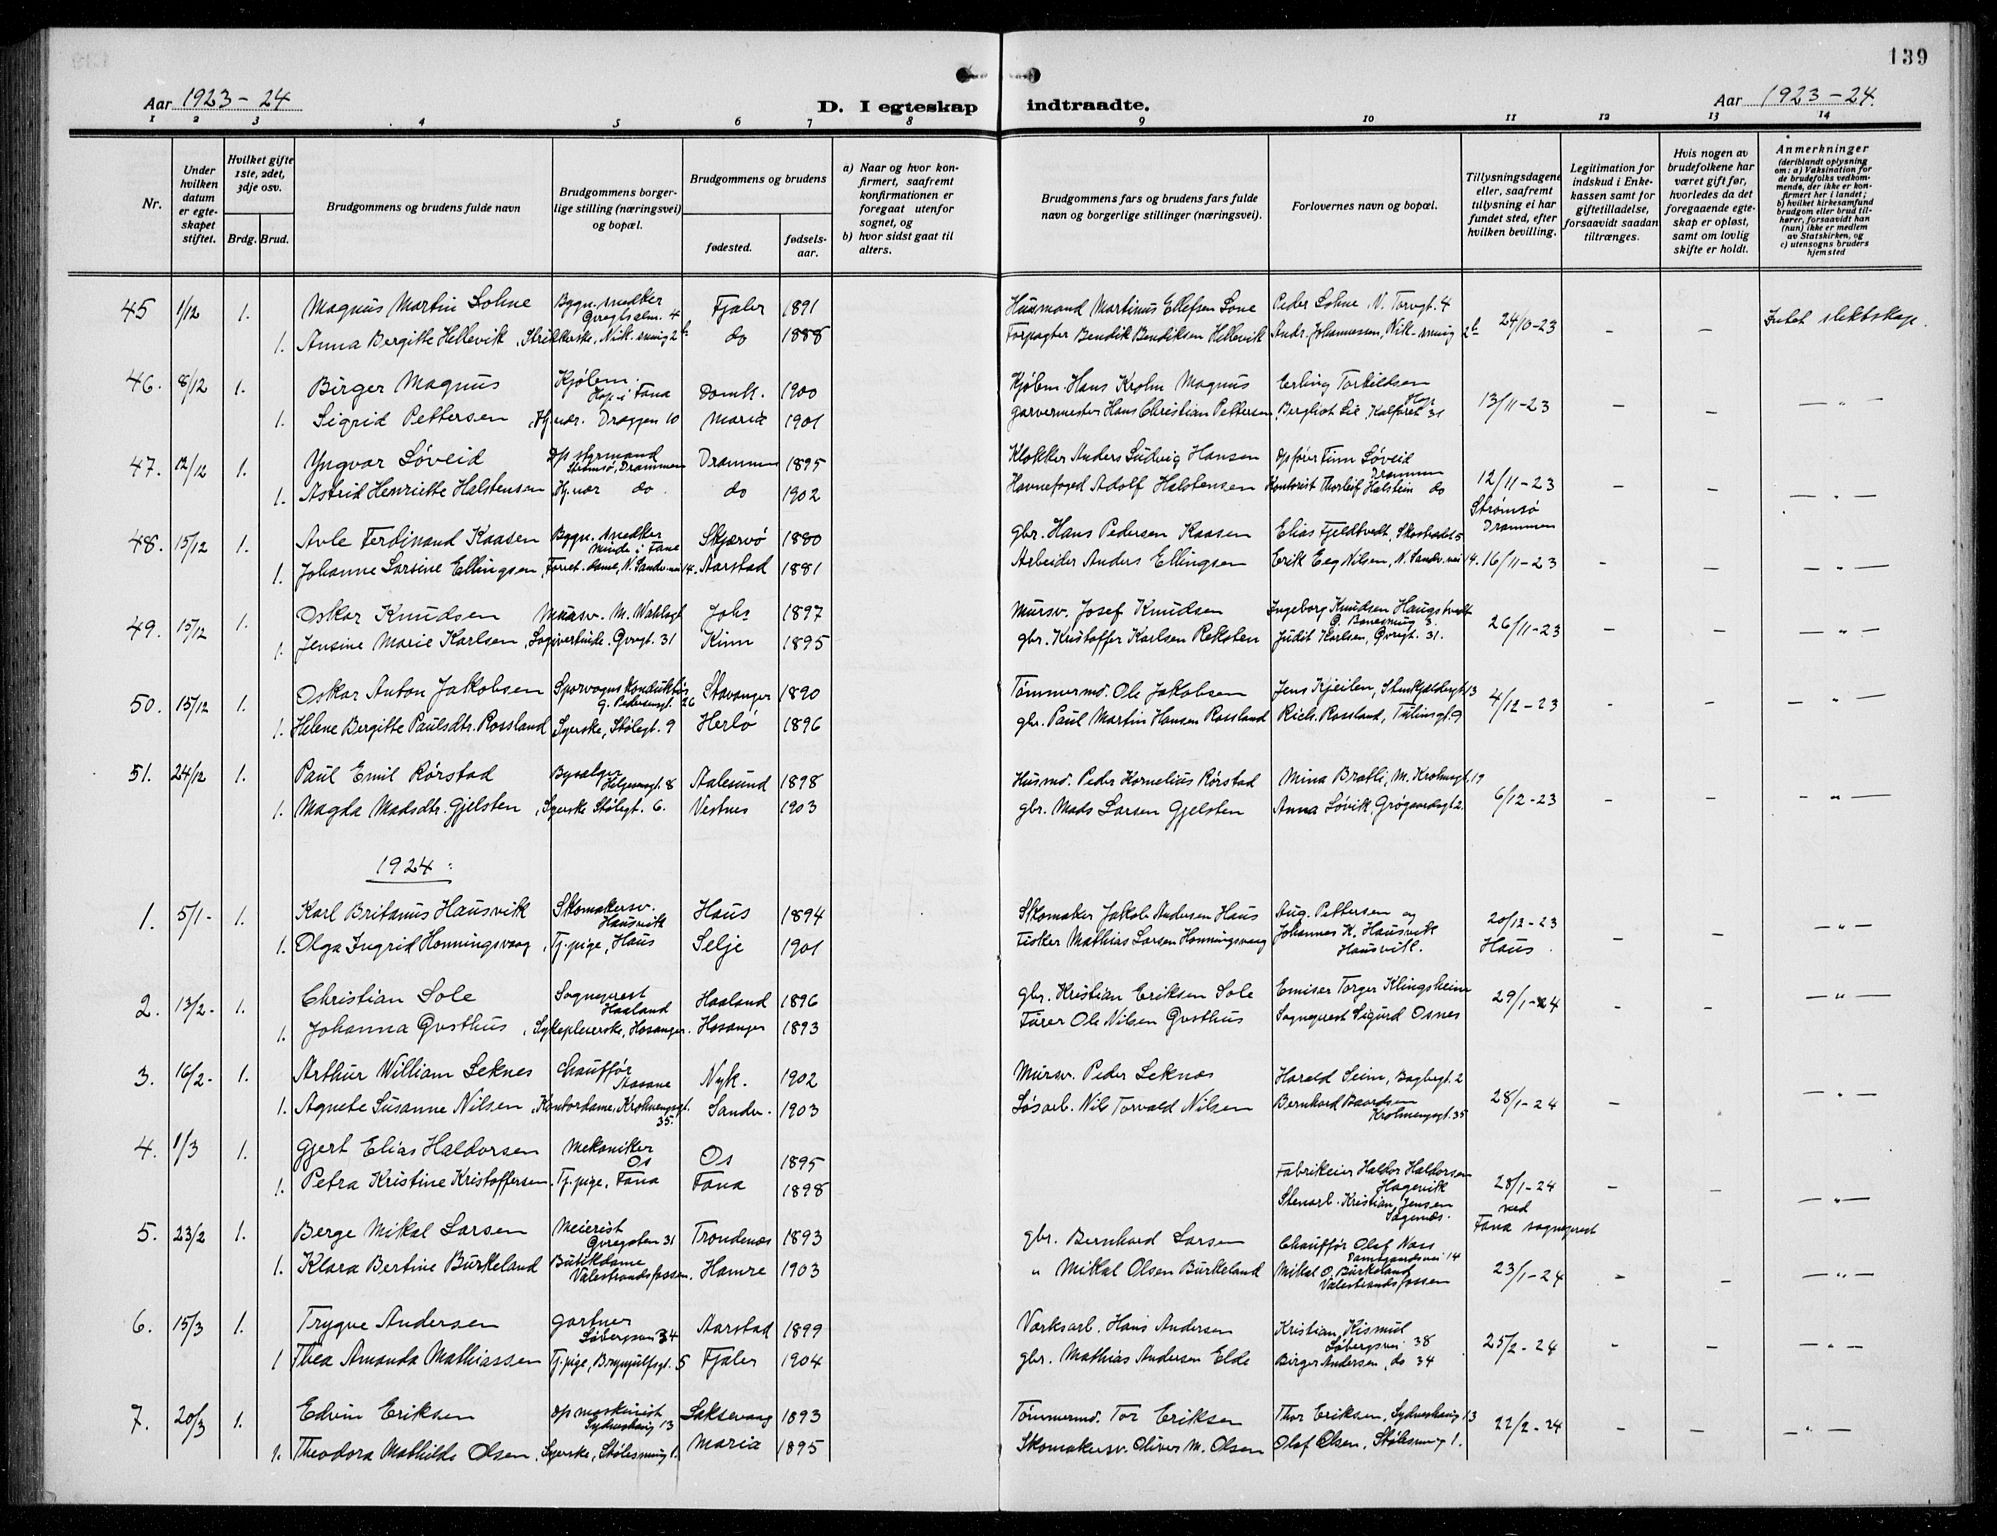 139
Aar 1923-24
D. I egteskap indtraadte.
Aar 1923-24.
1 2 3 4 5 6 7 8 9 10 11 12 13 14
Nr.
Under hvilken datum er egteskapet stiftet.
Hvilket gifte 1ste, 2det, 3dje osv.
Brdg. Brud.
Brudgommens og brudens fulde navn
Brudgommens borgerlige stilling (næringsvei) og bopæl.
Brudgommens og brudens
fødested.
fødselsaar.
a) Naar og hvor konfirmert, saafremt konfirmationen er foregaat utenfor sognet, og
b) hvor sidst gaat til alters.
Brudgommens fars og brudens fars fulde navn og borgerlige stillinger (næringsvei).
Forlovernes navn og bopæl.
Tillysningsdagene eller, saafremt tillysning ei har fundet sted, efter hvilken bevilling.
Legitimation for indskud i Enkekassen samt for giftetilladelse, forsaavidt saadan tiltrænges.
Hvis nogen av brudefolkene har været gift før, hvorledes da det foregaaende egteskap er opløst, samt om lovlig skifte er holdt.
Anmerkninger
(deriblandt oplysning om: a) Vaksination for de brudefolks vedkommende, der ikke er konfirmert her i landet; b) hvilket kirkesamfund brudgom eller brud tilhører, forsaavidt han (hun) ikke er medlem av Statskirken, og c) utensogns bruders hjemsted
45 1/12 1. Magnus Martin Sohne Bygn. snedker 4 Fjaler 1891 Husmand Martinus Ellefsen Sone Peder Sohne N. Torvgt. 4 24/10-23 - - Intet slektskap.
1. Anna Bergitte Hellevik, Strikkerske, Nik. smug 2b do 1888 Forpagter Bendik Bendiksen Hellevik Andr. Johannessen, Nik. smug 2b
46. 8/12 1. Birger Magnus Kjøbm. Hop i Fana Domk. 1900 Kjøbm. Hans Krohn Magnus Erling Torkildsen Hop 13/11-23 - - - " -
1. Sigrid Pettersen, Hj. vær. Dræggen 10 Maria 1901 garvermester Hans Christian Pettersen, Bergliot Lie Kalfaret 31
47. 12/12 1. Yngvar Løveid Dp styrmand Strømsø, Drammen Drammen 1895 Klokker Anders Ludvig Hansen Dpfører Finn Løveid Drammen 12/11-23 Strømsø Drammen - - - " -
1. Astrid Henriette Halstensen Hj. vær do. do 1902 Havnefoged Adolf Halstensen Kontorist Thorleif Halstein do
48. 15/12 1. Avle Ferdinand Kaasen Bygn. snedker Minde i Fane Skjærvø 1880 gbr. Hans Pedersen Kaasen Elias Fjeldtvedt, 5
1. Johanne Larsine Ellingsen, Forret. dame, N. Sandv. vei 14. Aarstad 1881 Arbeider Anders Ellingsen Erik Eeg Nilsen, N. Sandv. vei 14. 16/11-23 - - - " -
49. 15/12 1. Oskar Knudsen Mursv. M. Wahlsgt Johs 1897 Mursv. Josef Knudsen Ingeborg Knudsen 3. 26/11-23 - - - " -
1. Jensine Marie Karlsen, Øvregt. 31 Kinn 1895 gbr. Kristoffer Karlsen Reksten Judit Karlsen, Øvregt. 31.
50. 15/12 1. Oskar Anton Jakobsen Sporvogns konduktør G. Pedersensgt. 26 Stavanger 1890 Tømmermd. Ole Jakobsen Jens Kjeilen, Stenkjeldergt. 13 4/12-23 - - - " -
1. Helene Bergitte Paulsdtr. Rossland Syerske, Stølegt. 9 Herlø 1896 gbr. Paul Martin Hansen Rossland Rich. Rossland, 9
51. 24/12 1. Paul Emil Rørstad Bysælger Helgesensgt. 8 Aalesund 1898 Husmd. Peder Kornelius Rørstad Mina Bratli, M. Krohnsgt. 19 6/12-23 - - - " -
1. Magda Madsdtr. Gjelsten, Syerske Stølegt. 6. Vestnes 1903 gbr. Mads Larsen Gjelsten Anna Løvik, 2.
1924:
1. 5/1- 1. Karl Britanus Hausvik Skomakersv. Hausvik Haus 1894 Skomaker Jakob Andersen Haus Aug. Pettersen og 20/12-23 Haus - - - " -
1. Olga Ingrid Honningsvaag, Tj. pige, Haus Selje 1901 Fisker Mathias Larsen Honningsvaag Johannes K. Hausvik Hausvik.
2. 13/2- 1. Christian Sole Sogneprest Haaland Haaland 1896 gbr. Kristian Eriksen Sole Emisær Torger Klingsheim 29/1-24 - - - " -
1. Johanna Gusthus, Sykepleierske, Hosanger. Hosanger 1893 Fører Ole Nilsen Gusthus Sogneprest Sigurd Osnes
3. 16/2- 1. Arthur William Leknes Chauffør Aasane Nyk. 1902 Mursv. Peder Leknes Harald Seim, 2 28/1-24 - - " -
1. Agnete Susanne Nilsen, Kontordame, Krohnengsgt. 35. Sandv. 1903 Løsarb. Nils Torvald Nilsen Bernhard Baardsen Krohnengsgt. 35
4. 1/3 1. Gjert Elias Haldorsen Mekaniker Os Os 1895 Fabrikeier Haldor Haldorsen Hagevik 28/1-24 ved Fana sogneprest - - - " -
1. Petra Kristine Kristoffersen, Tj. pige, Fana Fana 1898 Stenarb. Kristian Jensen
5. 23/2 1. Berge Mikal Larsen Meierist Øvregaten 31 Trondenæs 1893 gbr. Bernhard Larsen Chauffør Olaf Næss Damsgaardsvei 14 23/1-24 - - - " -
1. Klara Bertine Burkeland Butikdame Valestrandsfossen, Hamre 1903 " Mikal Olsen Burkeland Mikal O. Burkeland Valestrandsfossen
6. 15/3 1. Trygve Andersen Gartner Løbergsvei 34 Aarstad 1899 Værksarb. Hans Andersen Kristian Kismul Løbergsvei 38 25/2-24 - - - " -
1 Thea Amanda Mathiassen Tj. pige, 5 Fjaler 1904 gbr. Mathias Andersen Elde Birger Andersen, do 34
7. 20/3 1. Edvin Eriksen Dp maskinist Sydneshaug 13 Laksevaag 1893 Tømmermd. Tor Eriksen Thor Eriksen, Sydneshaug 13 22/2-24 - - - " -
1. Theodora Mathilde Olsen, Syerske, Stølesmug 1. Maria 1895 Skomakersv. Oliver M. Olsen Olaf Olsen, Stølesmug 1.